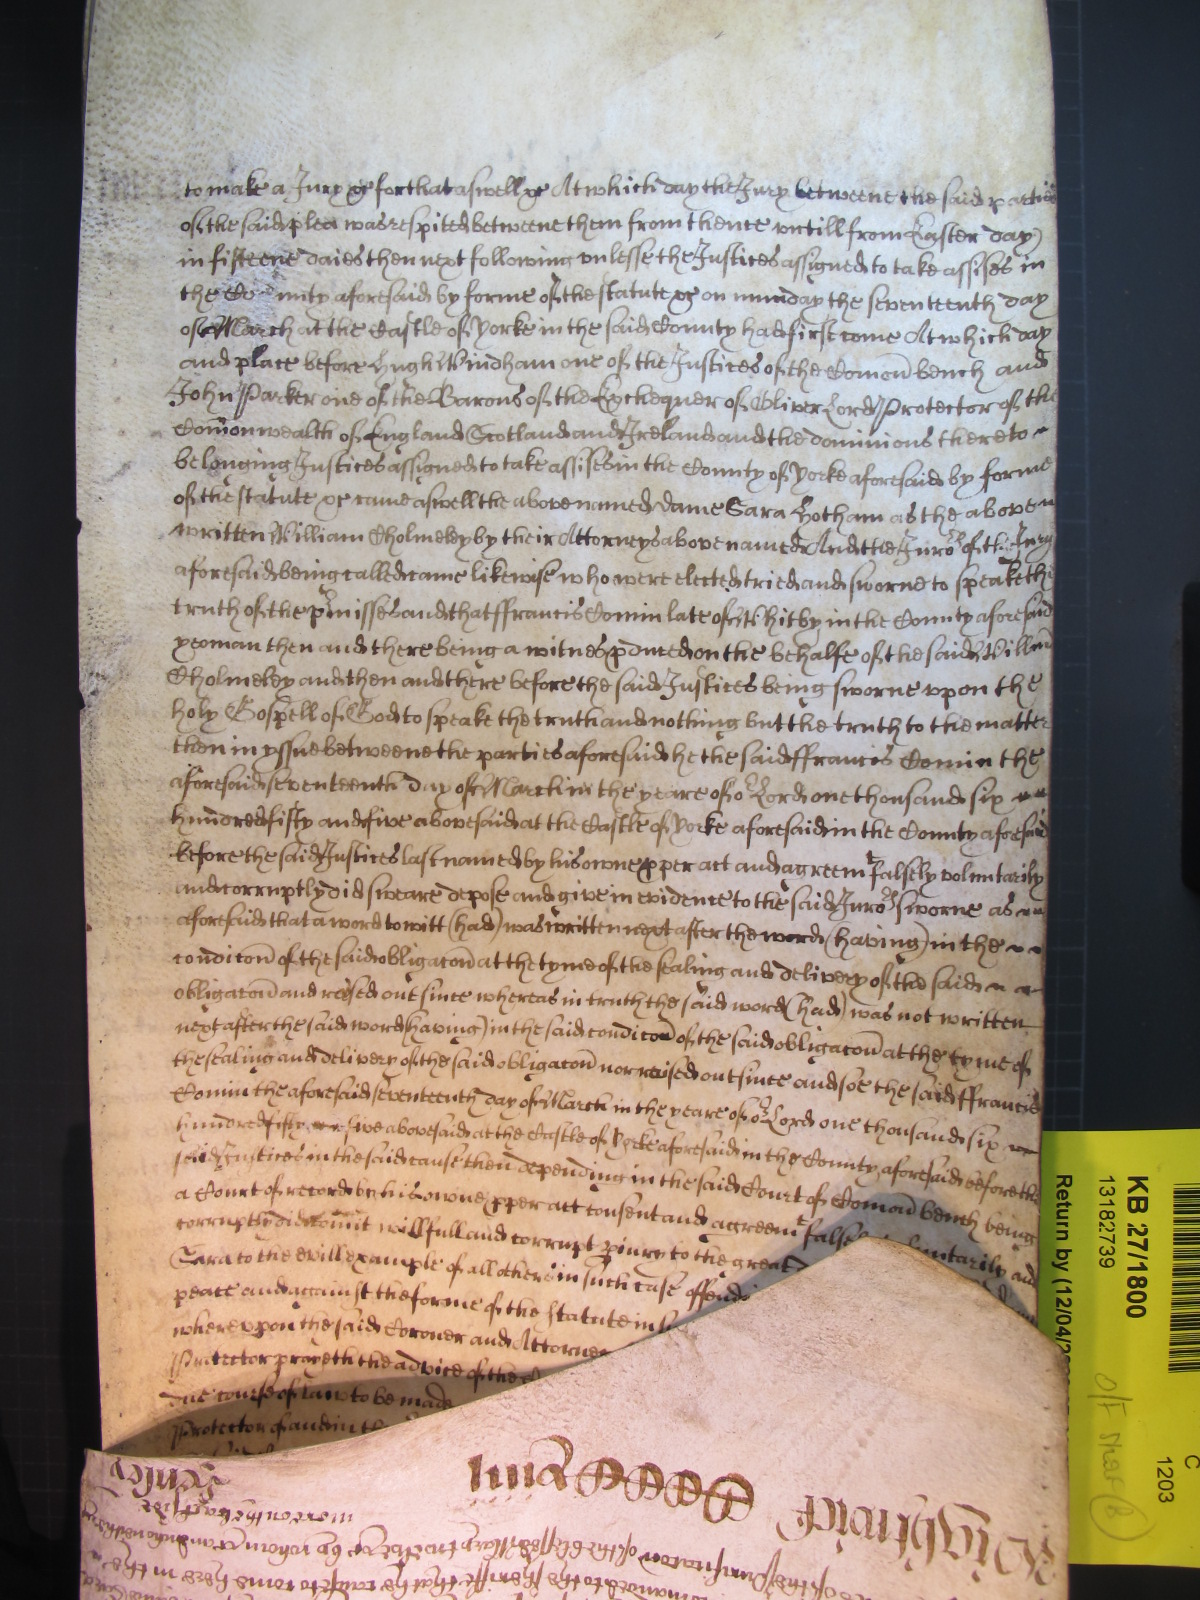 to make a Jury &c for that aswell &c At which day the Jury betweene the said parties
of the said plea was respited betweene them from thence vntill from Easter day
in fifteene daies then next following vnlesse the Justices assigned to take assises in
the County aforesaid by forme of the statute &c on munday the seventeenth day
of March at the Castle of Yorke in the said County had first come At which day
and place before Hugh Windham one of the Justices of the Comon bench and
John Parker one of the Barons of the Exchequer of Oliver Lord Protector of the
Comonwealth of England Scotland and Ireland and the dominions thereto
belonging Justices assigned to take assises in the County of Yorke aforesaid by forme
of the statute &c came aswell the above named dame Sara Hotham as the above
written William Cholmeley by their Attorneys above named And the Juro:s of the Jury
aforesaid being called came likewise who were elected tried and sworne to speake the
truth of the p:misses and that ffrancis Comin late of Whitby in the County aforesaid
yeoman then and there being a witnes pduced on the behalfe of the said Willm
Cholmeley and then and there before the said Justices being sworne vpon the
holy Gospell of God to speake the truth and nothing but the truth to the matter
then in yssue betweene the parties aforesaid he the said ffrancis Comin the
aforesaid seventeenth day of March in the yeare of o:r Lord one thousand six
hundred fifty and five abovesaid at the Castle of Yorke aforesaid in the County aforesaid
before the said Justices last named by his owne pper act and agreem:t falsely voluntarily
and corruptly did sweare depose and give in evidence to the said Juro:s sworne as
aforesaid that a word to witt (had) was written next after the word (having) in the
condicon of the said obligacon at the tyme of the sealing and delivery of the said
obligacon and rased out since whereas in truth the said word (had) was not written
next after the said word (having) in the said condicon of the said obligacon at the tyme of
the sealing and delivery of the said obligacon nor rased out since and soe the said ffrancis
Comin the aforesaid seventeenth day of March in the yeare of o:r Lord one thousand six
hundred fifty five abovesaid at the Castle of Yorke aforesaid in the County aforesaid before the
said Justices in the said cause then depending in the said Court of Comon bench being
a Court of record by his owne pper act consent and agreem:t falsely voluntarily and
corruptly did comit willfull and corrupt piury to the great
Sara to the evill example of all others in such case offending
peace and against the forme of the statute in
wherevpon the said Coroner and Attorney
Protector prayeth the advice of the
due course of law to be made
Protector of and in the
KB 27/1800
13182739
Return by (12/04/
C
1203